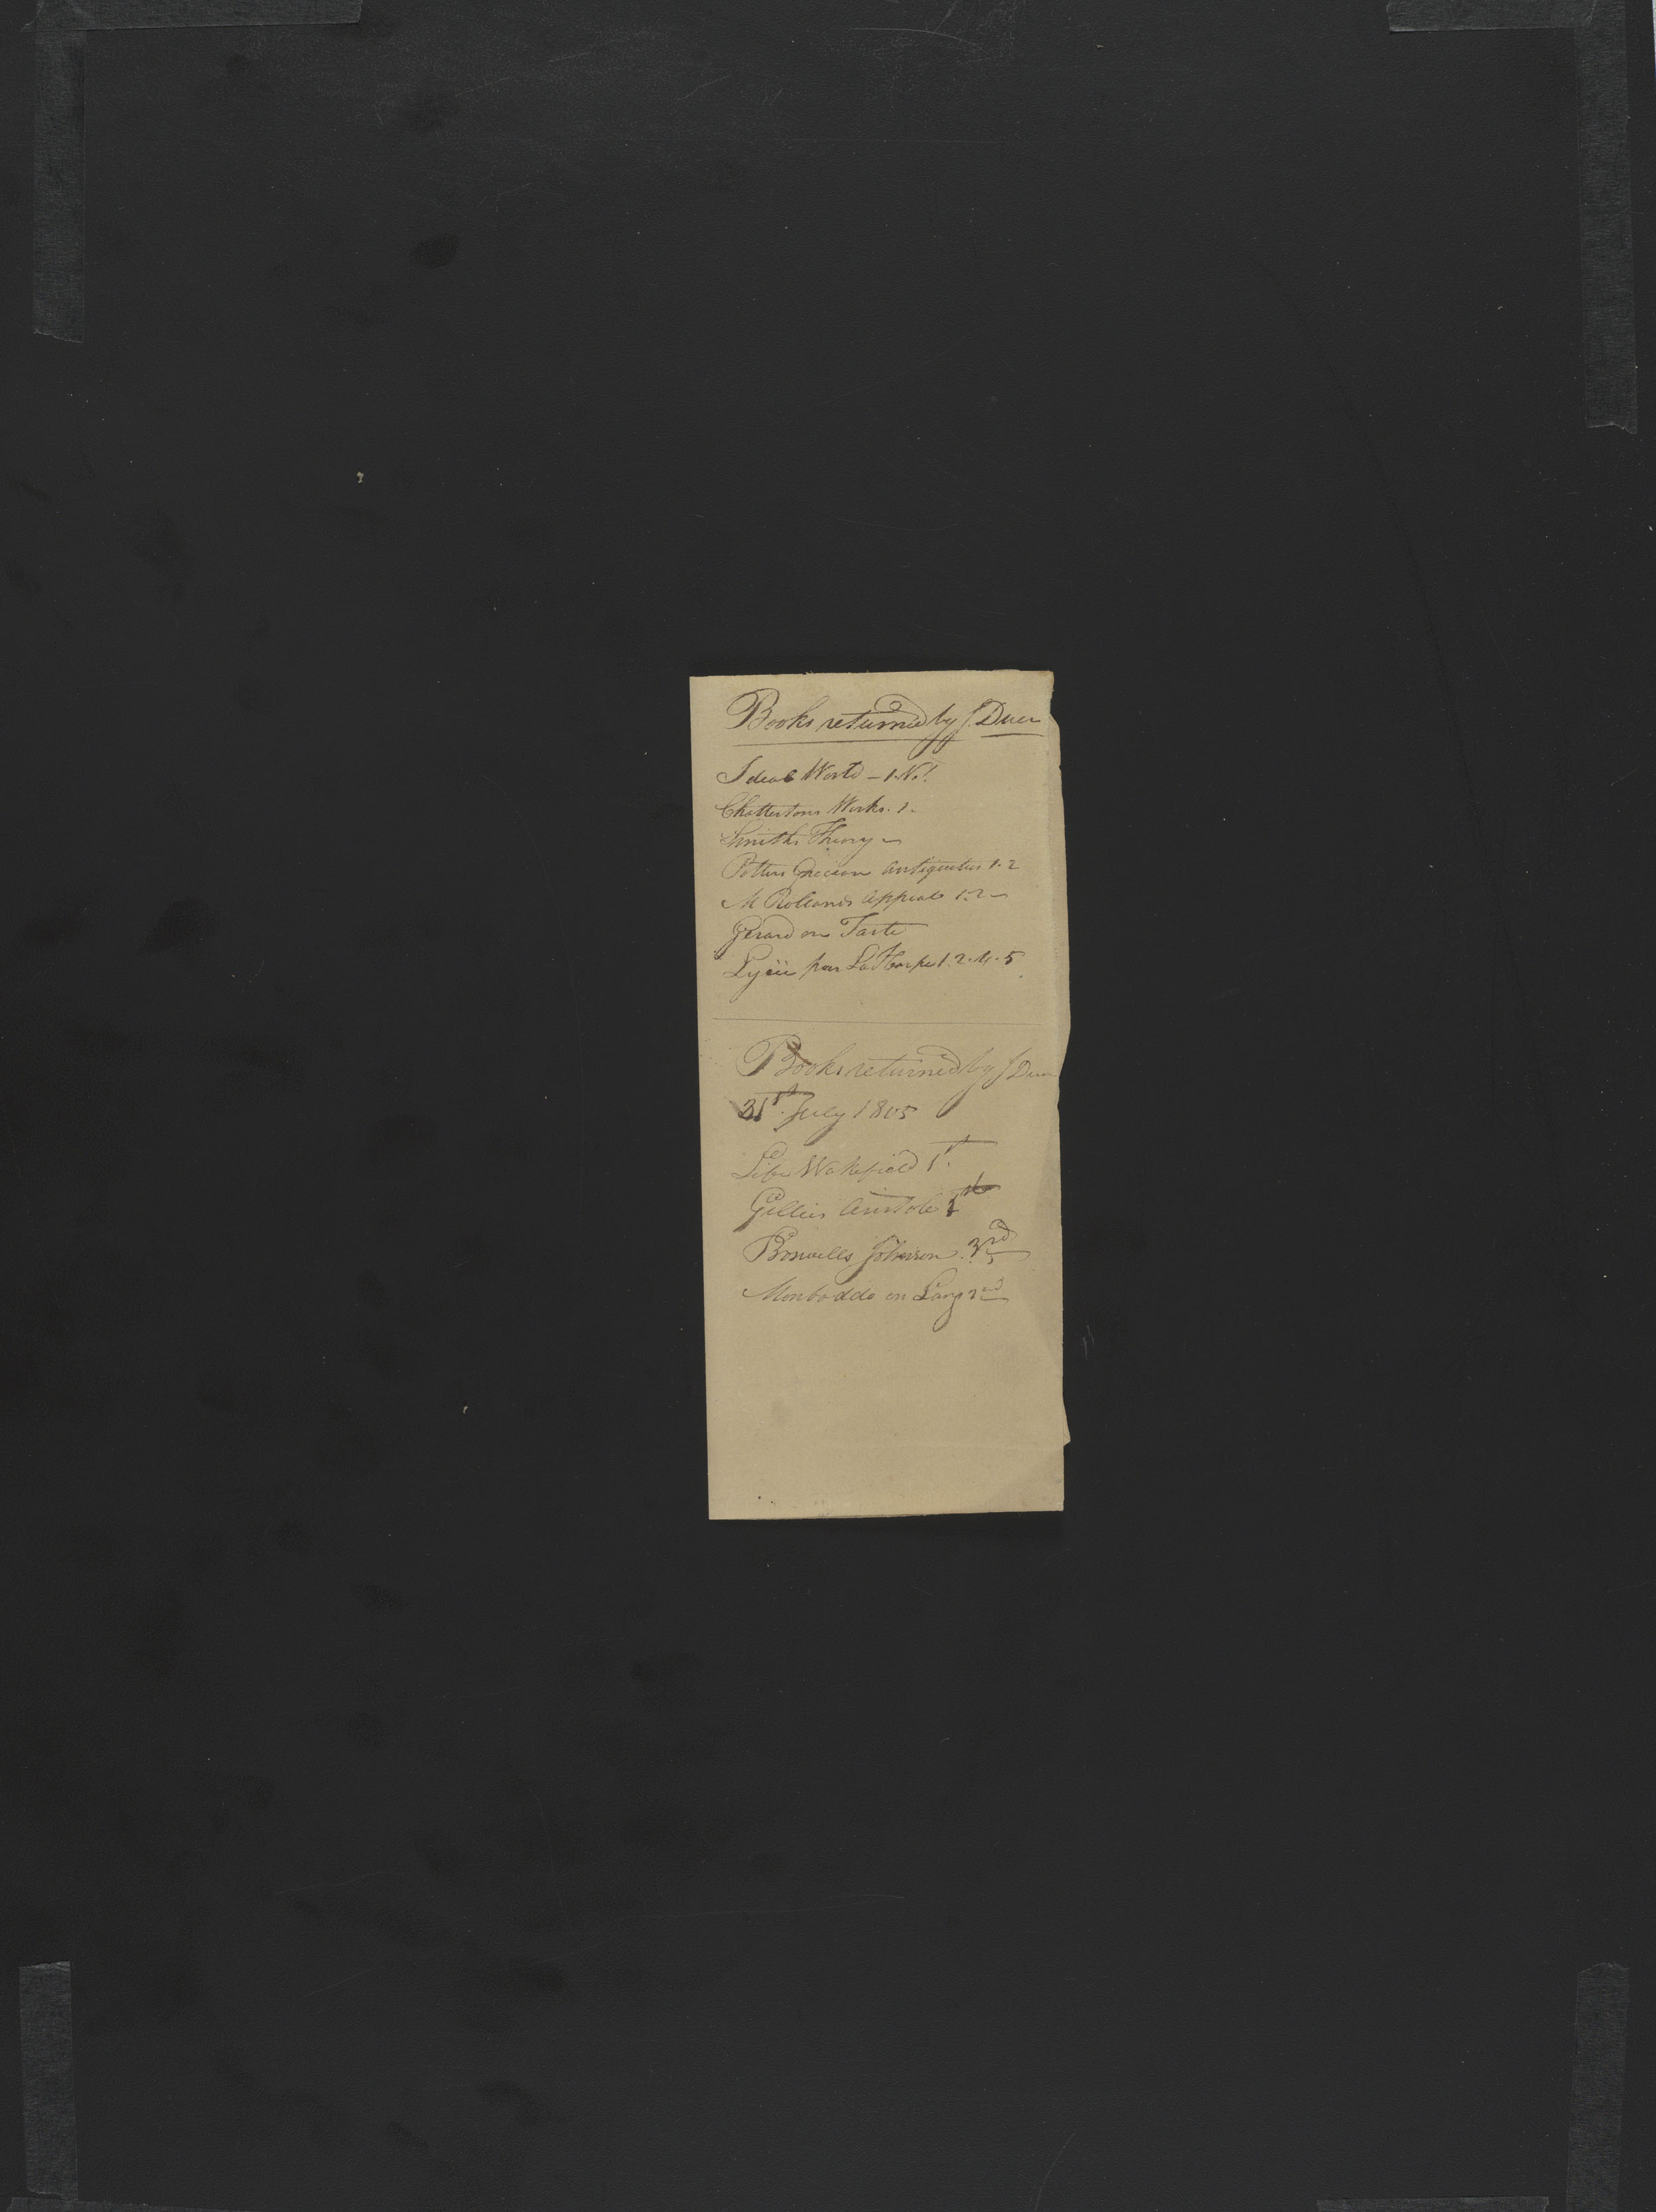 Books returned by J. Duer
Ideal World - 1. Vol.
Chattertons Works. 1.
Smiths Theory -
Potters Grecian Antiquities 1. 2
M Rolands Appeal 1. 2 -
Gerard on Taste
Lyceé par LaHarpe 1. 2. 4. 5
Books returned by J Duer
31st July 1805
Life Wakefield 1st
Gillies Aristotle 1st
Boswells Johnson 3rd
Monboddo on Lang 2nd